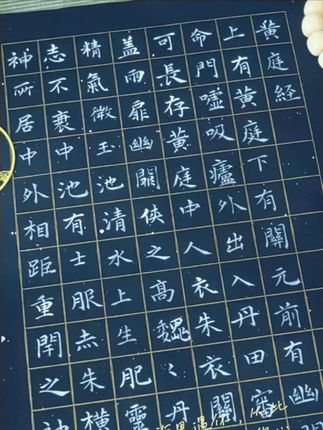 黄庭經
上有黄庭下有關元前有幽
命門噓吸廬外出入丹田審
可長存黄庭中人衣朱衣關
蓋雨扉幽關俠之高魏〻丹
精氣微玉池清水上生肥靈
志不衰中池有士服赤朱橫
神所居中外相距重閇之神